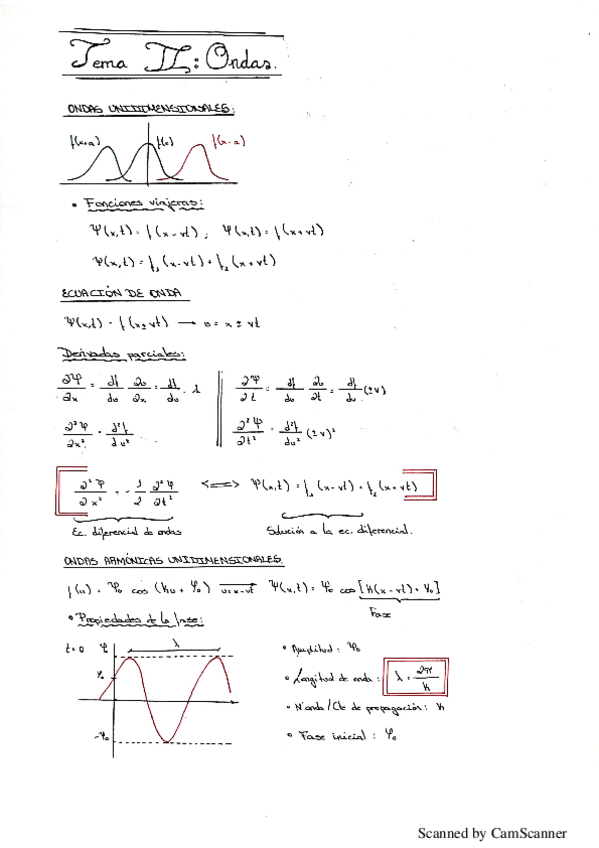 Tema II: Ondas.
ONDAS UNIDIMENSIONALES:
f(x+a) f(x) f(x-a)
• Funciones viajeras:
Ψ(x,t) = f(x-vt) ; Ψ(x,t) = f(x+vt)
Ψ(x,t) = f₁(x-vt) + f₂(x+vt)
ECUACIÓN DE ONDA
Ψ(x,t) = f(x±vt) → u = x ± vt
Derivadas parciales:
∂Ψ/∂x = df/du ∂u/∂x = df/du · 1
∂Ψ/∂t = df/du ∂u/∂t = df/du (±v)
∂²Ψ/∂x² = d²f/du²
∂²Ψ/∂t² = d²f/du² (±v)²
∂²Ψ/∂x² = ∂²Ψ/∂t² <==> Ψ(x,t) = f₁(x-vt) + f₂(x+vt)
Ec. diferencial de ondas
Solución a la ec. diferencial.
ONDAS ARMÓNICAS UNIDIMENSIONALES.
f(u) = Ψ₀ cos (ku + φ₀) → u=x-vt Ψ(x,t) = Ψ₀ cos [k(x-vt) + φ₀]
Fase
• Propiedades de la fase:
t=0 Ψ λ
-Ψ₀
• Amplitud: Ψ₀
• Longitud de onda: λ = 2π/k
• Nº onda/Cte de propagación: k
• Fase inicial: φ₀
Scanned by CamScanner